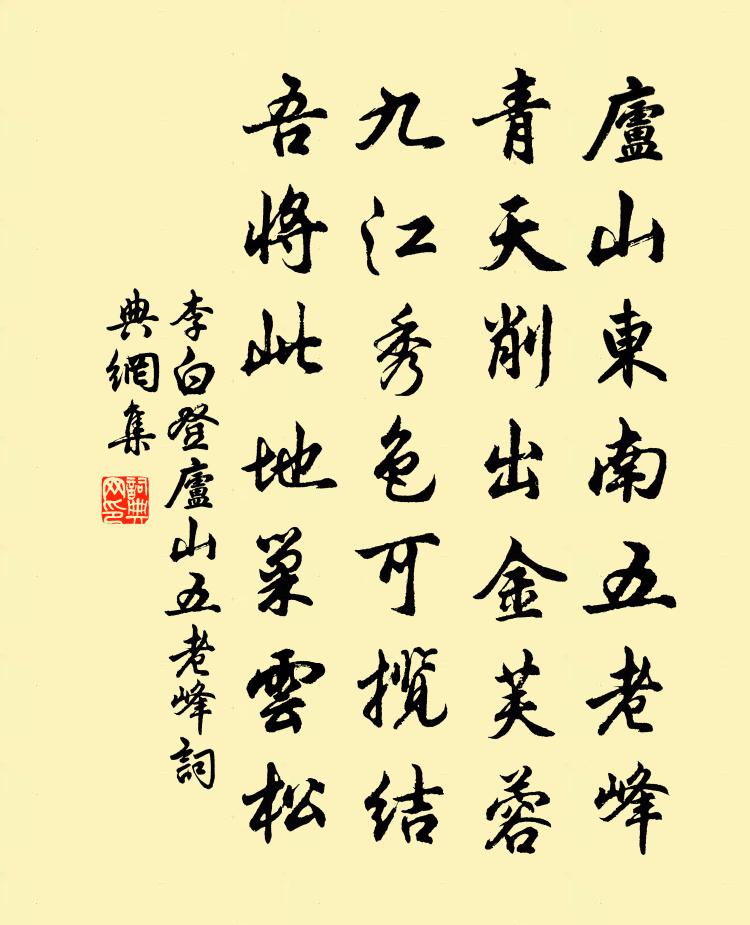 廬山東南五老峰
青天削出金芙蓉
九江秀色可攬结
吾將此地巢雲松
李白登廬山五老峰詞
典網集
詞典
网印